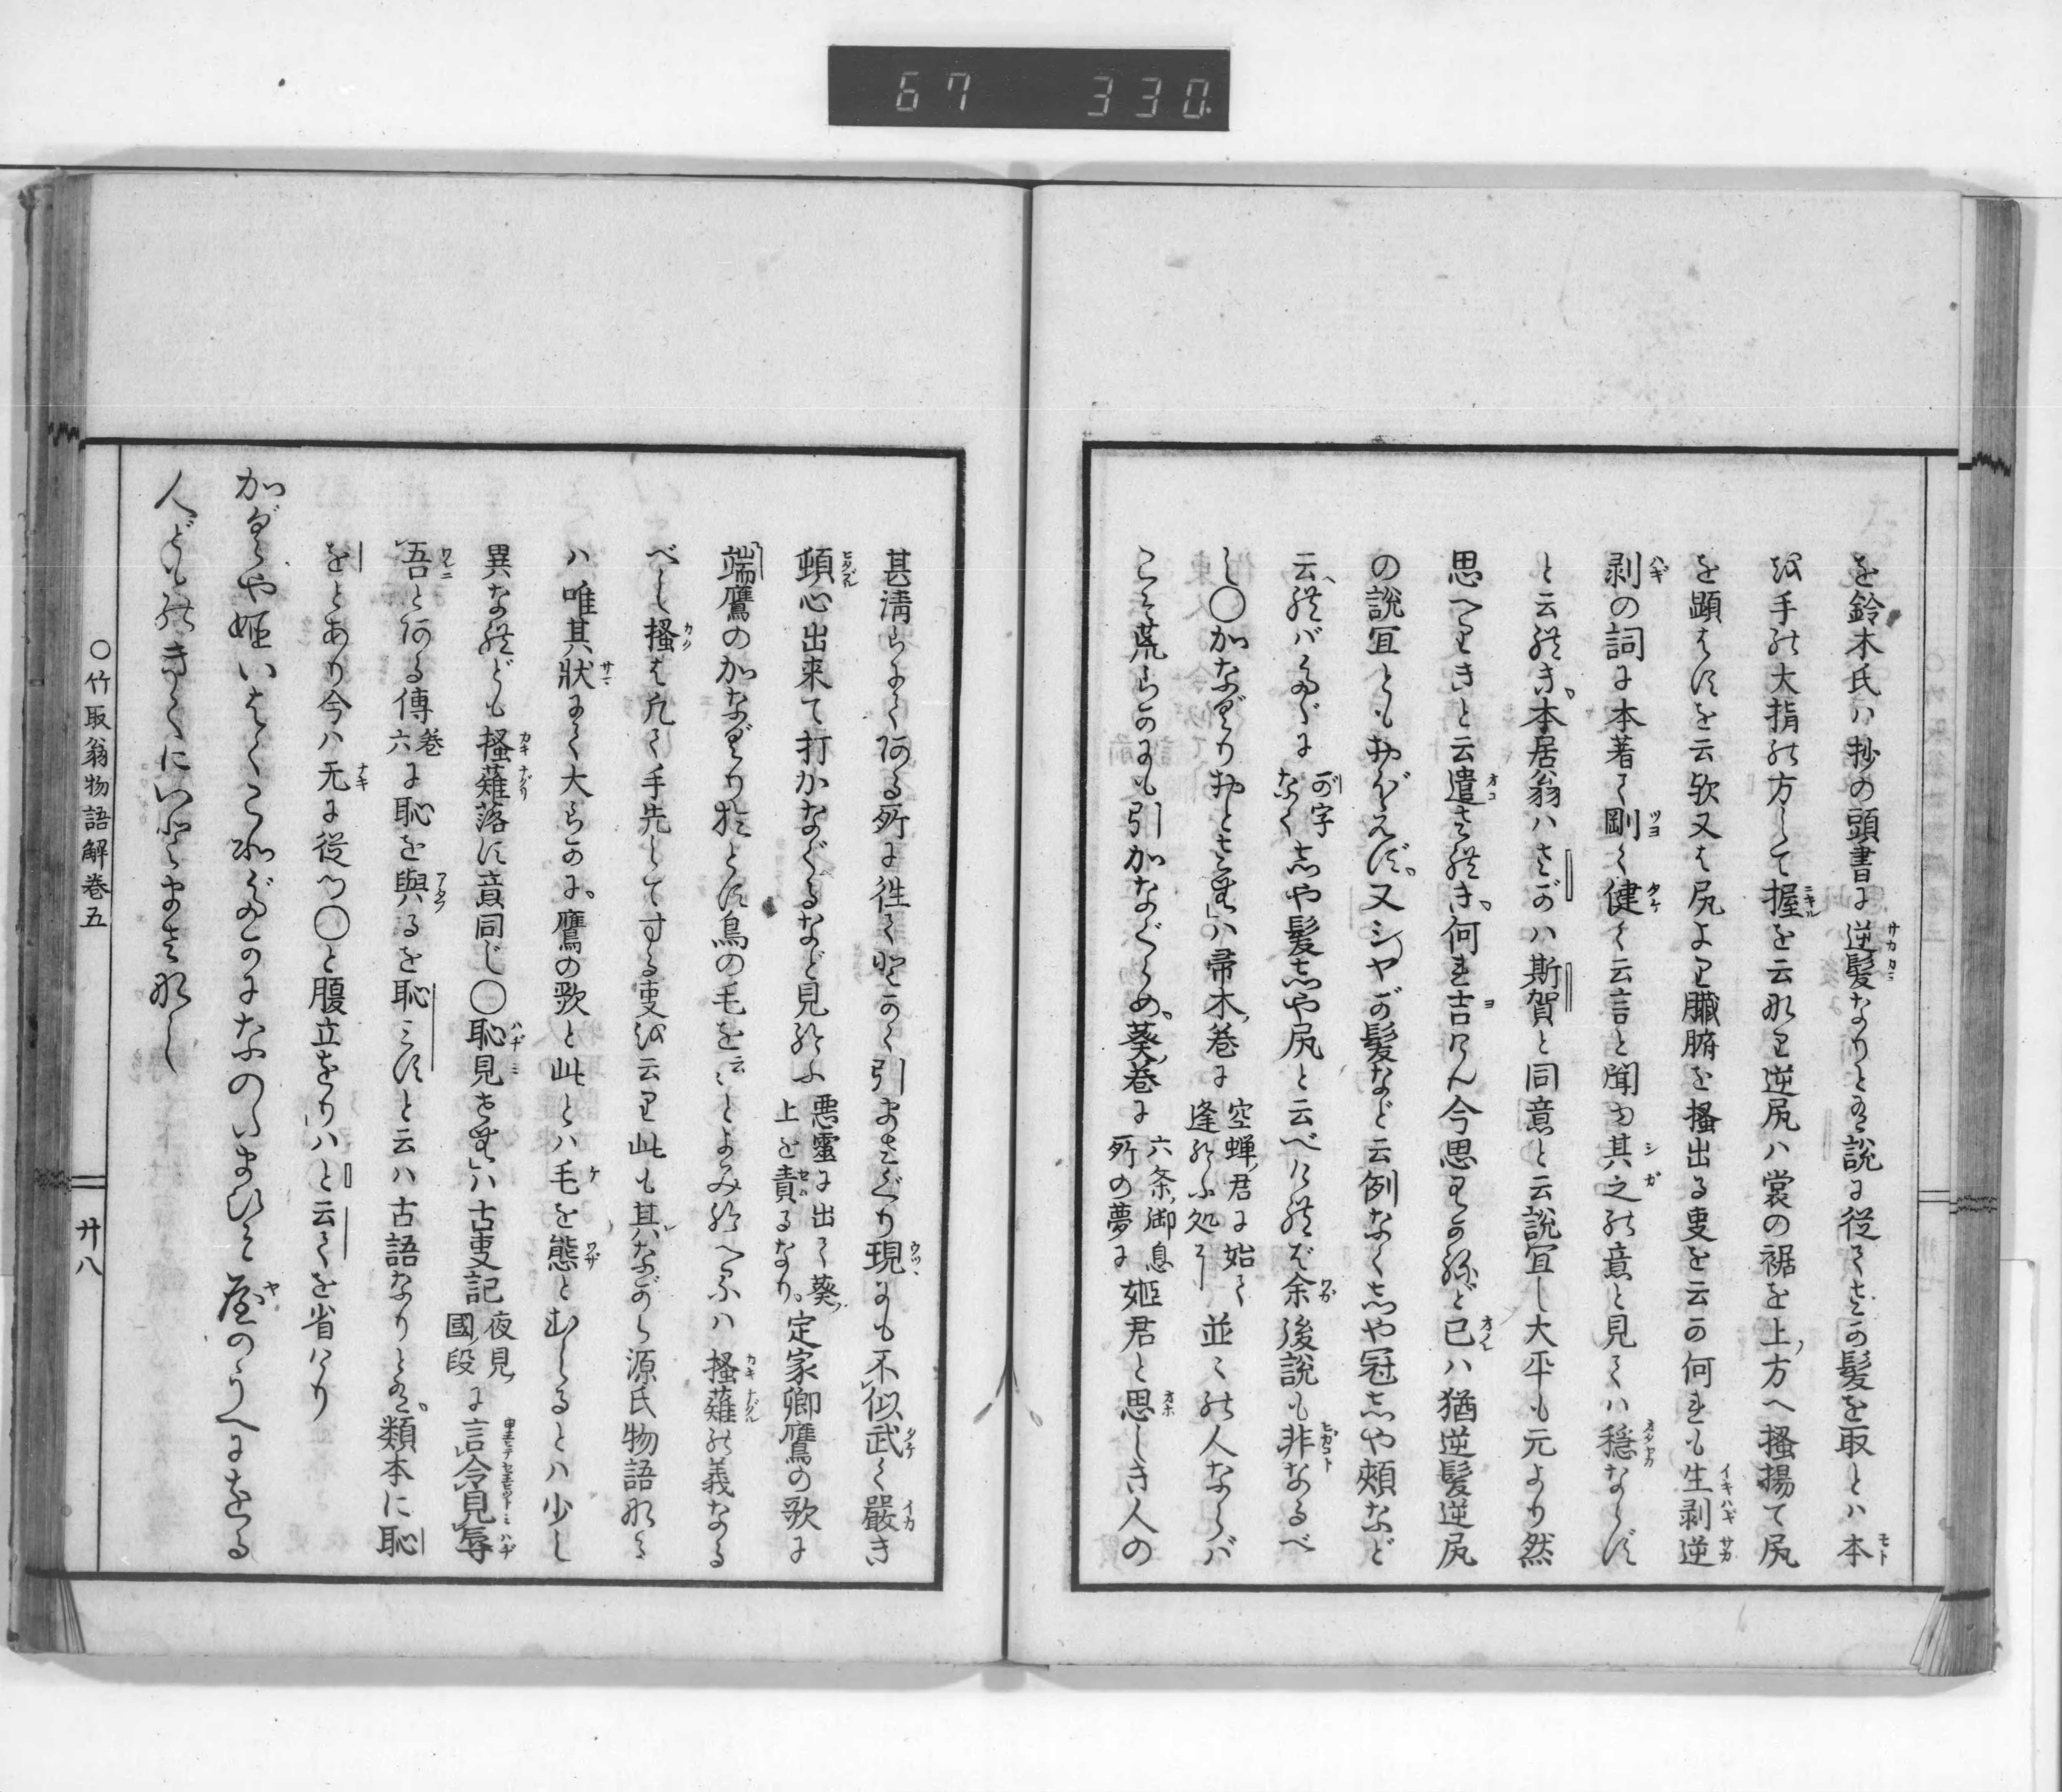 67 330
を鈴木氏ハ抄の頭書に逆髪なりとある説に従てさか髪を取とハ本
を手の大指の方して握を云なり逆尻ハ裳の裾を上方へ搔揚て尻
を顕はすを云欤又は尻より臓腑を搔出る叓を云か何れも生剥逆
剥の詞に本著て剛く健く云言と聞ゆ其之の意と見てハ穏ならず
と云れき。本居翁ハさがハ斯賀と同意と云説冝し大平も元より然
思へりきと云遣され き。何れ吉けん今思りかねど己ハ猶逆髪逆尻
の説冝ともおぼえず。又シヤが髪など云例なくしや冠しや頬など
云れバかならずに が字なく しや髪しや尻と云べければ余後説も非なるべ
し〇かなぐりおとさむハ帚木巻に 空蝉君に始て逢給ふ処に 並々の人ならバ
こそ荒らかにも引かなぐらめ。葵巻に 六条御息所の夢に 姫君と思しき人の
甚淸らにてある所に徃てとかく引まさぐり現にも不似武く嚴き
頓心出来て打かなぐるなど見給ふ 悪靈に出て葵上を責るなり。 定家卿鷹の歌に
端鷹のかなぐりおとす鳥の毛を云々とよみ給へるハ搔薙の義なる
べし搔は凡て手先して する叓を云り此も其ながら源氏物語なる
ハ唯其狀にて大らかに。鷹の歌と此とハ毛を態とむしるとハ少し
異なれども搔薙落す意同じ〇恥見せむハ古叓記 夜見國段 に言令見辱
吾とある傳 六巻 に恥を與るを恥みすと云ハ古語なりとあり。類本に恥
をとあり今ハ无に従つ〇と腹立をりハと云てを省けり
かぐや姫いはくこわだかになのたまひそ屋のうへにをる
人どものきくにいとまさなし
〇竹取翁物語解巻五
廿八